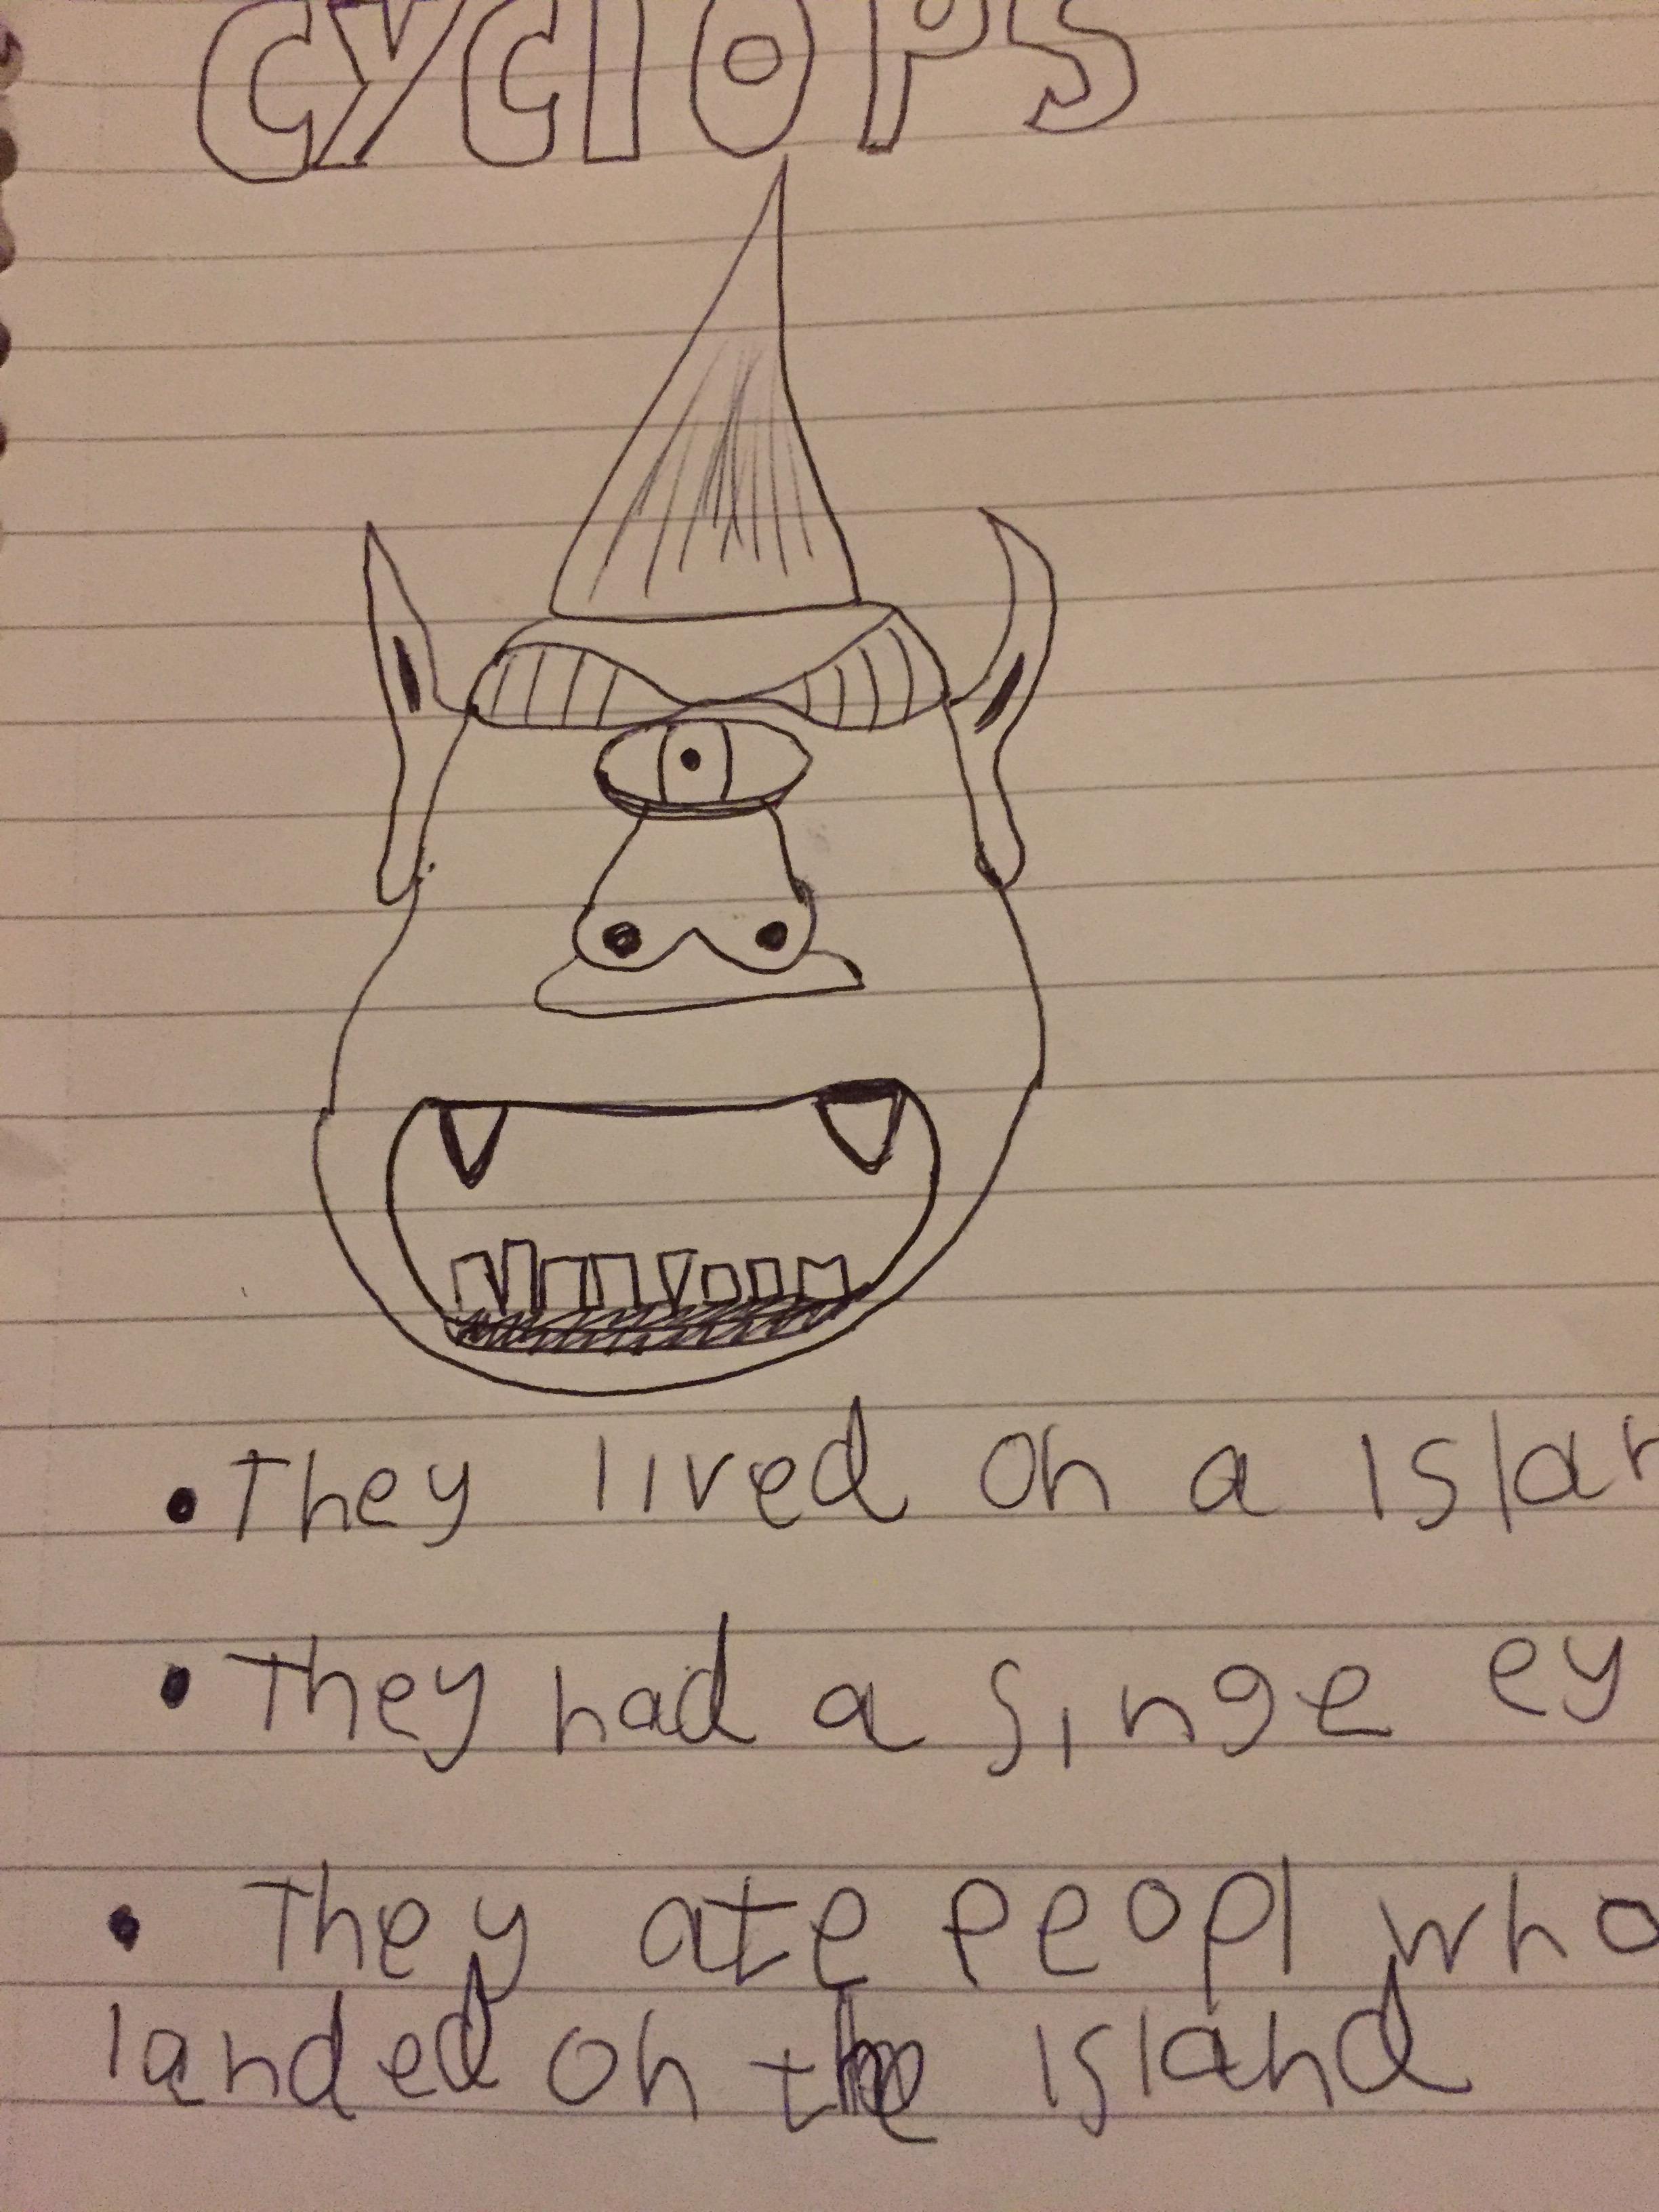 CYCLOPS
• They lived on a Islan
• They had a singe ey
• They ate peopl who
landed on the Island